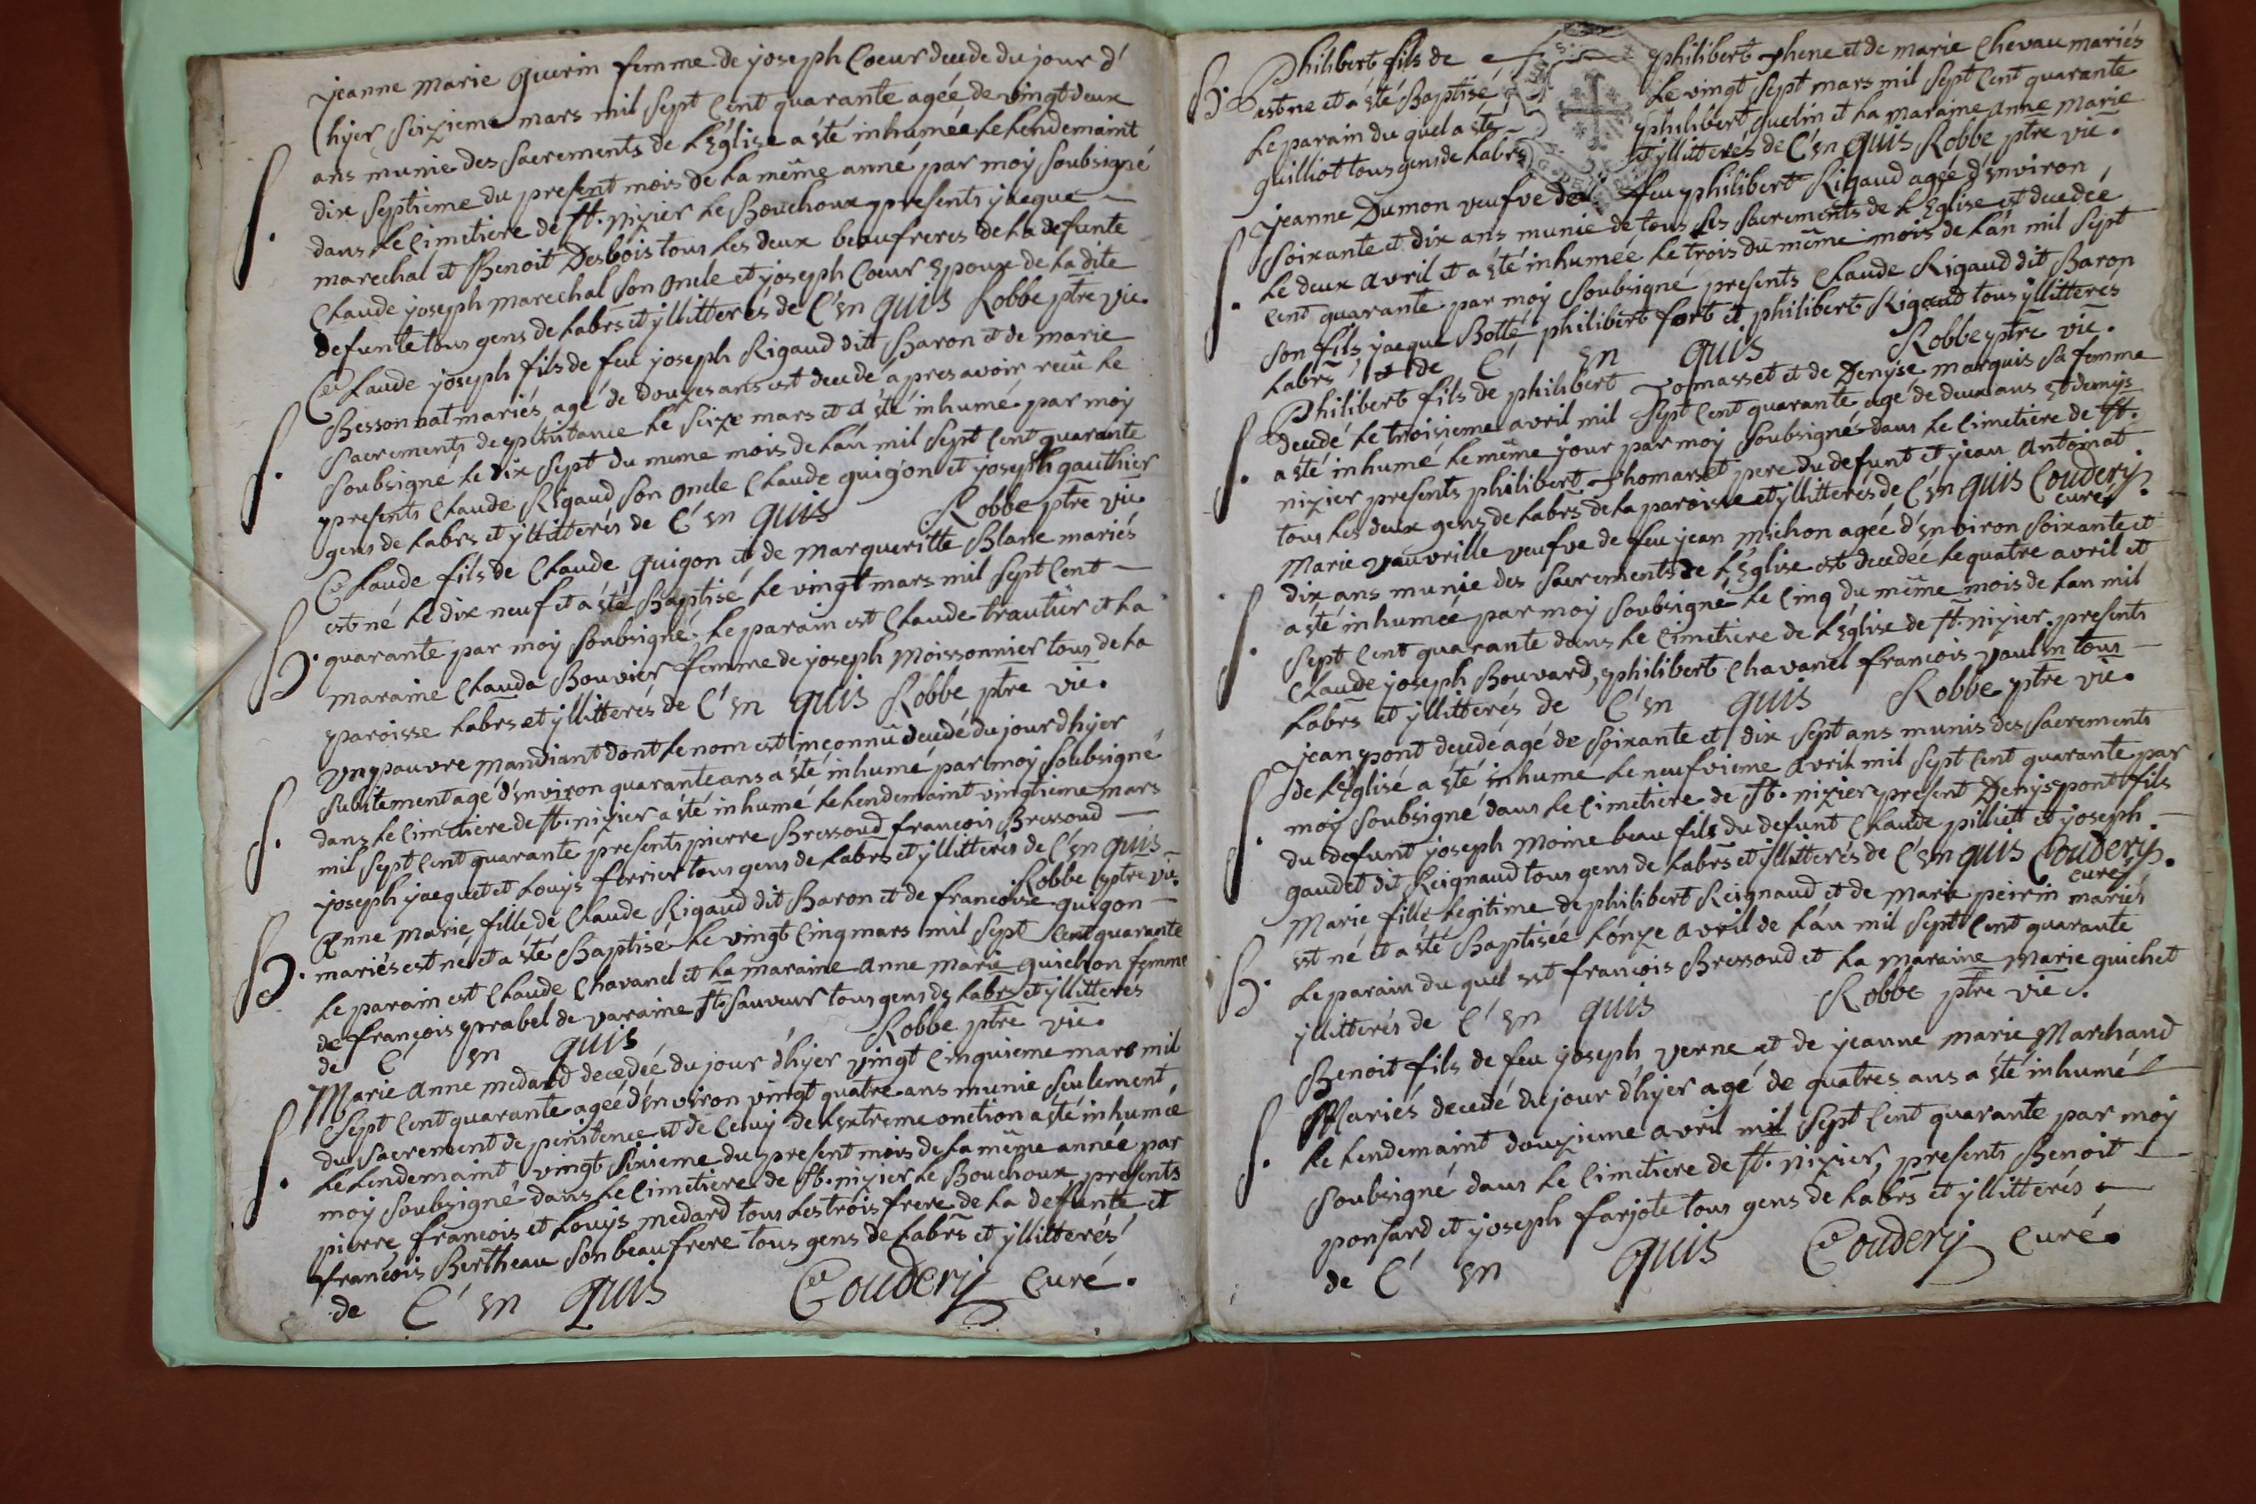 jeanne marie guerin femme de joseph Coeur decede du jour d'
hyer seizieme mars mil sept Cent quarante agée de vingt deux
ans munie des sacrements de L'Eglise a été inhumée le Lendemaint
S. dix septieme du present mois de la même anné par moy soubsigné
dans le Cimetiere de st. nizier le Bouchoux presents jacque
marechal et Benoit Desbois tous les deux beaufreres de la defunte
Claude joseph marechal son oncle et joseph Coeur Epoux de la dite
defunte tous gens de Labrs et yllitterés de C'en quis Robbe ptre vic.
Claude joseph fils de feu joseph Rigaud dit Baron et de marie
Bessonnat mariés, agé de douzes ans est decedé apres avoir reçû le
S. sacrements de penitance le seize mars et a été inhumé par moy
soubsigné le dix sept du meme mois de L'an mil sept Cent quarante
presents Claude Rigaud son oncle Claude guigon et joseph gauthier
gens de Labrs et yllitterés de C'en quis Robbe ptre vic.
Claude fils de Claude guigon et de margueritte Blanc mariés
est né le dix neuf et a été Baptisé le vingt mars mil sept Cent
B. quarante par moy soubsigné, le parain est Claude trautür et la
maraine Clauda Bouvier femme de joseph moissonnier tous de la
paroisse Labrs et yllitterés de C'en quis Robbe ptre vic.
Un pauvre mandiant dont le nom est inconnû decedé du jour d'hyer
subitement agé d'environ quarante ans a été inhumé par moy soubsigné
S. dans le Cimetiere de st. nizier a été inhumé le Lendemaint vingtieme mars
mil sept Cent quarante presents pierre Bressoud francois Bressoud
joseph jacquet et Louys ferrier tous gens de Labrs et yllitterés de C'en quis
Robbe ptre vic.
Anne Marie fille de Claude Rigaud dit Baron et de francoise guigon
B. mariés est né et a été Baptisé le vingt Cinq mars mil sept Cent quarante
le parain est Claude Chavanel et la maraine anne marie guichon femme
de françois prabel de varaine st sauveur tous gens de Labrs et yllitterés
de C'en quis Robbe ptre vic.
Marie anne medard decedée du jour d'hyer vingt Cinquieme mars mil
sept Cent quarante agée d'environ vingt quatre ans munie seulement
du sacrement de penitence et de Celuy de Lextreme onction a été inhumée
S. le Lendemaint vingt sixieme du present mois de la même année par
moy soubsigné dans le Cimetiere de st. nizier le Bouchoux presents
pierre francois et Louys medard tous les trois frere de la defunte et
francois Bertheau son beaufrere tous gens de Labrs et yllitterés
de C'en quis Coudery Curé.
Philibert fils de philibert thene et de marie Chevau mariés
B. est né et a été Baptisé Le vingt sept mars mil sept Cent quarante
Le parain du quel a été philibert guelin et la maraine anne marie
guilliot tous gens de Labrs et yllitterés de C'en quis Robbe ptre vic.
jeanne Dumon veufve de feu philibert Rigaud agée d'environ
soixante et dix ans munie de tous ses sacrements de L'Eglise est decedée
S. Le deux avril et a été inhumée le trois du même mois de L'an mil sept
Cent quarante par moy soubsigné presents Claude Rigaud dit Baron
son fils jacque Botte philibert fort et philibert Rigaud tous yllitterés
Labrs et de C'en quis Robbe ptre vic.
Philibert fils de philibert Tomasset et de Denyse marquis sa femme
decedé le troisieme avril mil sept Cent quarante agé de deux ans et demys
S. a été inhumé le même jour par moy soubsigné dans le Cimetiere de st.
nizier presents philibert thomasset pere du defunt et jean antoinat
tous les deux gens de Labrs de la paroisse et yllitterés de C'en quis Coudery
curé.
Marie vauvrille veufve de feu jean michon agée d'environ soixante et
dix ans munie des sacrements de L'Eglise est decedée le quatre avril et
S. a été inhumée par moy soubsigné le Cinq du même mois de L'an mil
sept Cent quarante dans le Cimetiere de L'Eglise de st. nizier. presents
Claude joseph Bouvard, philibert Chavanel francois vaulin tous
Labrs et yllitterés de C'en quis Robbe ptre vic.
jean pont decedé agé de soixante et dix sept ans munis des sacrements
de L'Eglise a été inhume le neufvieme avril mil sept Cent quarante par
S. moy soubsigné dans le Cimetiere de st. nizier present Denys pont fils
du defunt joseph moine beau fils du defunt Claude pilliett et joseph
gaudet dit Reignaud tous gens de Labrs et yllitterés de C'en quis Coudery.
curé
Marie fille Legitime de philibert Reignaud et de marie peirin mariés
est né et a été Baptisée L'onze avril de L'an mil sept Cent quarante
B. Le parain du quel est francois Bressoud et la maraine marie guichet
yllitterés de C'en quis Robbe ptre vic.
Benoit fils de feu joseph verne et de jeanne marie Marchand
Mariés decedé du jour d'hyer agé de quatres ans a été inhumé
S. le Lendemaint douzieme avril mil sept Cent quarante par moy
soubsigné dans le Cimetiere de st. nizier, presents Benoit
ponsard et joseph farjote tous gens de Labrs et yllitterés
de C'en quis Coudery Curé.